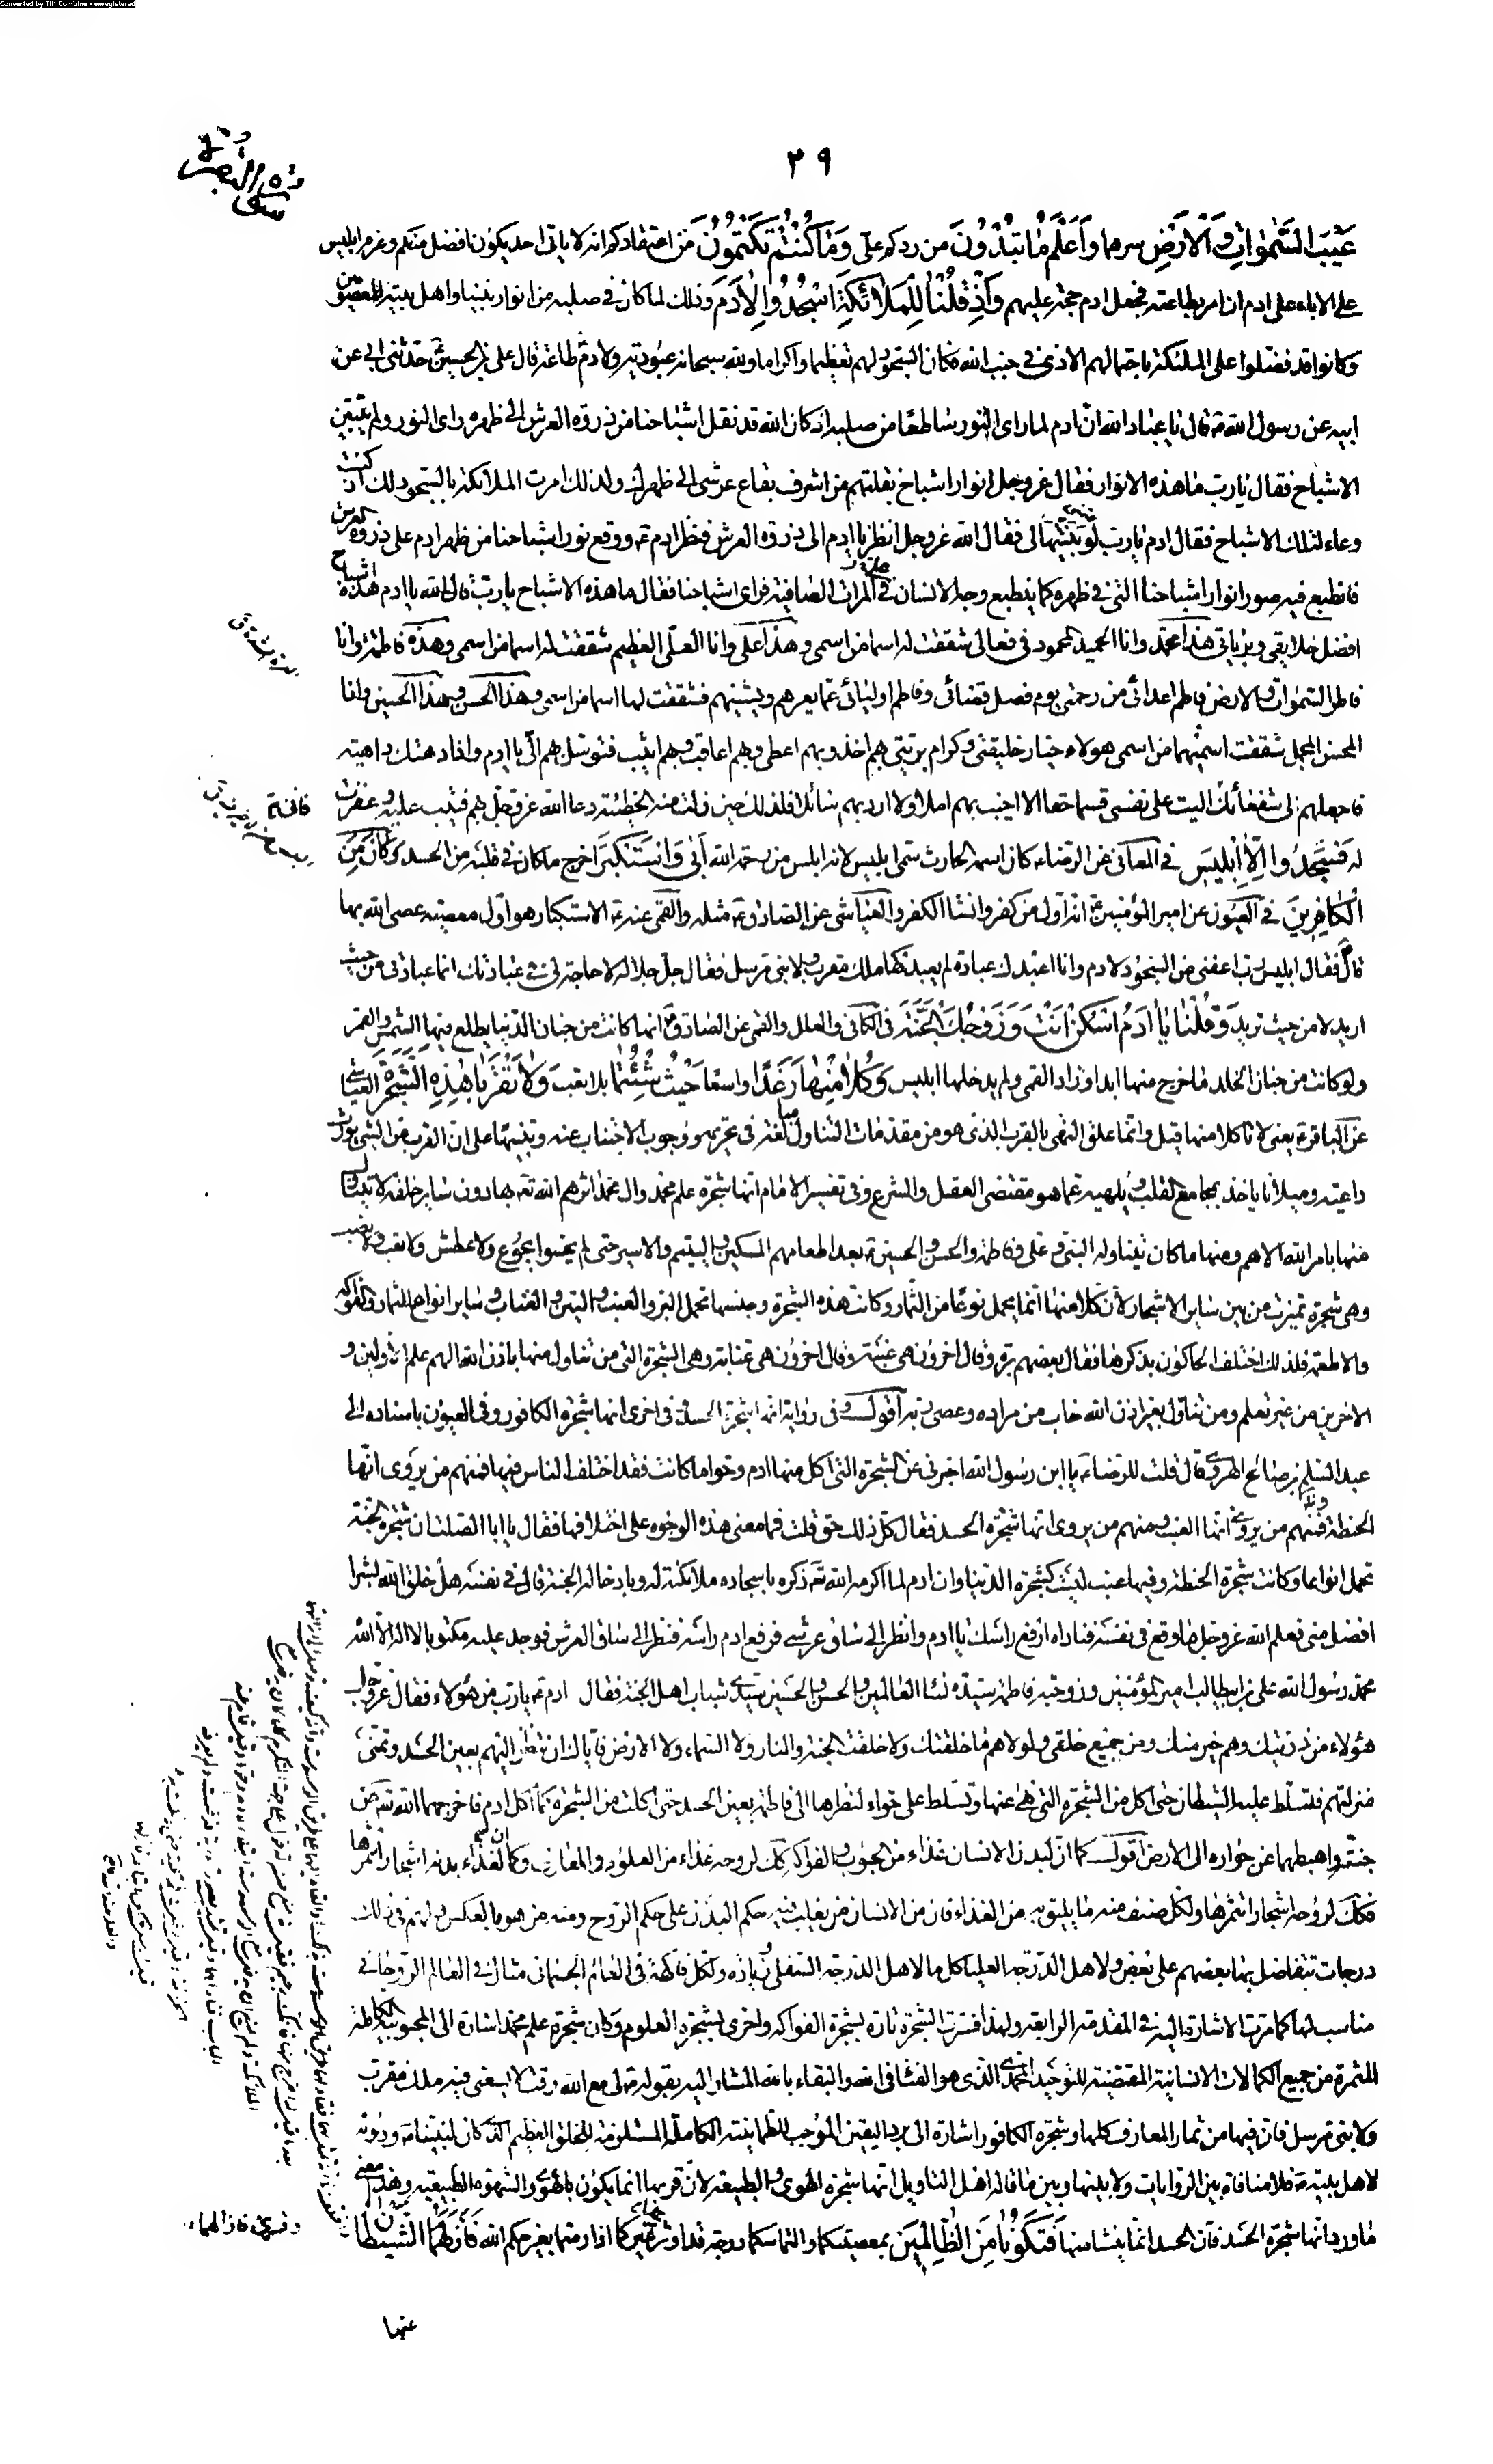 Converted by Tiff Combine - unregistered
٢٩
غَيْبَ السَّمٰوٰاتِ وَالْاَرْضِ سرهما وَاَعْلَمُ مٰا تُبْدُونَ من ردكم علي وَمٰا كُنْتُمْ تَكْتُمُونَ من اعتقادكم انه لا ياتى احد يكون افضل منكم وعزم ابليس
على الاباء على ادم ان امر بطاعته فجعل ادم حجة عليهم وَاِذْ قُلْنٰا لِلْمَلٰائِكَةِ اسْجُدُوا لِاٰدَمَ وذلك لما كان فى صلبه من انوار نبينا واهل بيته المعصومين
وكانوا قد فضلوا على الملئكة باحتمالهم الاذى فى جنب الله فكان السجود لهم تعظيما واكراما ولله سبحانه عبودية ولادم طاعة قال على بن الحسين ع حدثنى ابى عن
ابيه عن رسول الله ص قال يا عباد الله ان ادم لما راى النور ساطعا من صلبه اذ كان الله قد نقل اشباحنا من ذروة العرش الى ظهره راى النور ولم يتبين
الاشباح فقال يا رب ما هذه الانوار فقال عز وجل انوار اشباح نقلتهم من اشرف بقاع عرشى الى ظهرك ولذلك امرت الملائكة بالسجود لك اذ كنت
وعاء لتلك الاشباح فقال ادم يا رب لو بينتها لى فقال الله عز وجل انظر يا ادم الى ذروة العرش فنظر ادم ع ووقع نور اشباحنا من ظهر ادم على ذروة العرش
فانطبع فيه صور انوار اشباحنا التى فى ظهره كما ينطبع وجه الانسان فى المراة الصافية فراى اشباحنا فقال ما هذه الاشباح يا رب قال الله يا ادم هذه اشباح
افضل خلايقى وبرياتى هذا محمد وانا الحميد المحمود فى فعالى شققت له اسما من اسمى وهذا على وانا العلى العظيم شققت له اسما من اسمى وهذه فاطمة وانا
فاطر السموات والارض فاطم اعدائى من رحمتى يوم فصل قضائى وفاطم اوليائى عما يعرهم ويشينهم فشققت لها اسما من اسمى وهذا الحسن وهذا الحسين وانا
المحسن المجمل شققت اسميهما من اسمى هولاء خيار خليقتى وكرام بريتى بهم اخذ وبهم اعطى وبهم اعاقب وبهم اثيب فتوسل بهم الى يا ادم واذا دهتك داهية
فاجعلهم الى شفعائك اليت على نفسى قسما حقا الا اخيب بهم املا ولا ارد بهم سائلا فلذلك حين زلت منه الخطيئة دعا الله عز وجل بهم فتيب عليه وغفرت
له فَسَجَدُوا اِلّٰا اِبْلِيسَ فى المعانى عن الرضا ع كان اسمه الحارث سمى ابليس لانه ابلس من رحمة الله اَبىٰ وَاسْتَكْبَرَ اخرج ما كان فى قلبه من الحسد وَكٰانَ مِنَ
الْكٰافِرِينَ فى العيون عن امير المؤمنين ع انه اول من كفر وانشا الكفر والعياشى عن الصادق ع مثله والقمى عنه ع الاستكبار هو اول معصية عصى الله بها
قال فقال ابليس رب اعفنى من السجود لادم وانا اعبدك عبادة لم يعبدكها ملك مقرب ولا نبى مرسل فقال جل جلاله لا حاجة لى فى عبادتك انما عبادتى من حيث
اريد لا من حيث تريد وَقُلْنٰا يٰا اٰدَمُ اسْكُنْ اَنْتَ وَزَوْجُكَ الْجَنَّةَ فى الكافى والعلل والقمى عن الصادق ع انها كانت من جنان الدنيا يطلع فيها الشمس والقمر
ولو كانت من جنان الخلد ما خرج منها ابدا وزاد القمى ولم يدخلها ابليس وَكُلٰا مِنْهٰا رَغَداً واسعا حَيْثُ شِئْتُمٰا بلا تعب وَلٰا تَقْرَبٰا هٰذِهِ الشَّجَرَةَ العياشى
عن الباقر ع يعنى لا تاكلا منها قيل وانما علق النهى بالقرب الذى هو من مقدمات التناول مبالغة فى تحريمه ووجوب الاجتناب عنه وتنبيها على ان القرب من الشئ يورث
داعية وميلا ما ياخذ بمجامع القلب ويلهيه عما هو مقتضى العقل والشرع وفى تفسير الامام انها شجرة علم محمد وال محمد اثرهم الله تع بها دون ساير خلقه لا يتناول
منها بامر الله الا هم ومنها ما كان يتناوله النبى وعلى وفاطمة والحسن والحسين ع بعد اطعامهم المسكين واليتيم والاسير حتى لم يحسوا بجوع ولا عطش ولا تعب ولا نصب
وهى شجرة تميزت من بين ساير الاشجار لان كلا منها انما يحمل نوعا من الثمار وكانت هذه الشجرة وجنسها تحمل البر والعنب والتين والعناب وساير انواع الثمار والفواكه
والاطعمة فلذلك اختلف الحاكون بذكرها فقال بعضهم برة وقال اخرون هى عنبة وقال اخرون هى عنابة وهى الشجرة التى من تناول منها باذن الله الهم علم الاولين و
الاخرين من غير تعلم ومن تناول بغير اذن الله خاب من مراده وعصى ربه اقول وفى رواية انها شجرة الحسد وفى اخرى انها شجرة الكافور وفى العيون باسناده الى
عبد السلام بن صالح الهروى قال قلت للرضا ع يا ابن رسول الله اخبرنى عن الشجرة التى اكل منها ادم وحوا ما كانت فقد اختلف الناس فيها فمنهم من يروى انها
الحنطة ومنهم من يروى انها العنب ومنهم من يروى انها شجرة الحسد فقال كل ذلك حق قلت فما معنى هذه الوجوه على اختلافها فقال يا ابا الصلت ان شجرة الجنة
تحمل انواعا وكانت شجرة الحنطة وفيها عنب ليست كشجرة الدنيا وان ادم لما اكرمه الله تع ذكره باسجاده ملائكته له وبادخاله الجنة قال فى نفسه هل خلق الله بشرا
افضل منى فعلم الله عز وجل ما وقع فى نفسه فناداه ارفع راسك يا ادم وانظر الى ساق عرشى فرفع ادم راسه فنظر الى ساق العرش فوجد عليه مكتوبا لا اله الا الله
محمد رسول الله على بن ابيطالب امير المؤمنين وزوجته فاطمة سيدة نساء العالمين والحسن والحسين سيدى شباب اهل الجنة فقال ادم ع يا رب من هؤلاء فقال عز وجل
هؤلاء من ذريتك وهم خير منك ومن جميع خلقى ولولاهم ما خلقتك ولا خلقت الجنة والنار ولا السماء ولا الارض فاياك ان تنظر اليهم بعين الحسد وتمنى
منزلتهم فتسلط عليه الشيطان حتى اكل من الشجرة التى نهى عنها وتسلط على حواء لنظرها الى فاطمة بعين الحسد حتى اكلت من الشجرة كما اكل ادم فاخرجهما الله تع من
جنته واهبطهما عن جواره الى الارض اقول كما ان لبدن الانسان غذاء من الحبوب والفواكه كك لروحه غذاء من العلوم والمعارف وكما ان لغذاء بدنه اشجارا تثمرها
فكك لروحه اشجار تثمرها ولكل صنف منه ما يليق به من الغذاء فان من الانسان من يغلب فيه حكم البدن على حكم الروح ومنه من هو بالعكس ولهم فى ذلك
درجات يتفاضل بها بعضهم على بعض ولاهل الدرجة العليا كل ما لاهل الدرجة السفلى وزيادة ولكل فاكهة فى العالم الجسمانى مثال فى العالم الروحانى
مناسب لها كما مرت الاشارة اليه فى المقدمة الرابعة ولهذا فسرت الشجرة تارة بشجرة الفواكه واخرى بشجرة العلوم وكان شجرة علم محمد اشارة الى المحبوبية الكاملة
المثمرة من جميع الكمالات الانسانية المقتضية للتوحيد المحمدى الذى هو الفناء فى الله والبقاء بالله المشار اليه بقوله ص لى مع الله وقت لا يسعنى فيه ملك مقرب
ولا نبى مرسل فان فيها من ثمار المعارف كلها وشجرة الكافور اشارة الى برد اليقين الموجب للطمانينة الكاملة المستلزمة للخلق العظيم الذى كان لنبينا ص ودونه
لاهل بيته ع فلا منافاة بين الروايات ولا بينها وبين ما قاله اهل التاويل انها شجرة الهوى والطبيعة لان قربها انما يكون بالهوى والشهوة الطبيعية وهذا معنى
ما ورد انها شجرة الحسد فان الحسد انما ينشا منها فَتَكُونٰا مِنَ الظّٰالِمِينَ بمعصيتكما والتماسكما درجة قد اوثر بها غيركما اذا رمتما بغير حكم الله فَاَزَلَّهُمَا الشَّيْطٰانُ
عنها